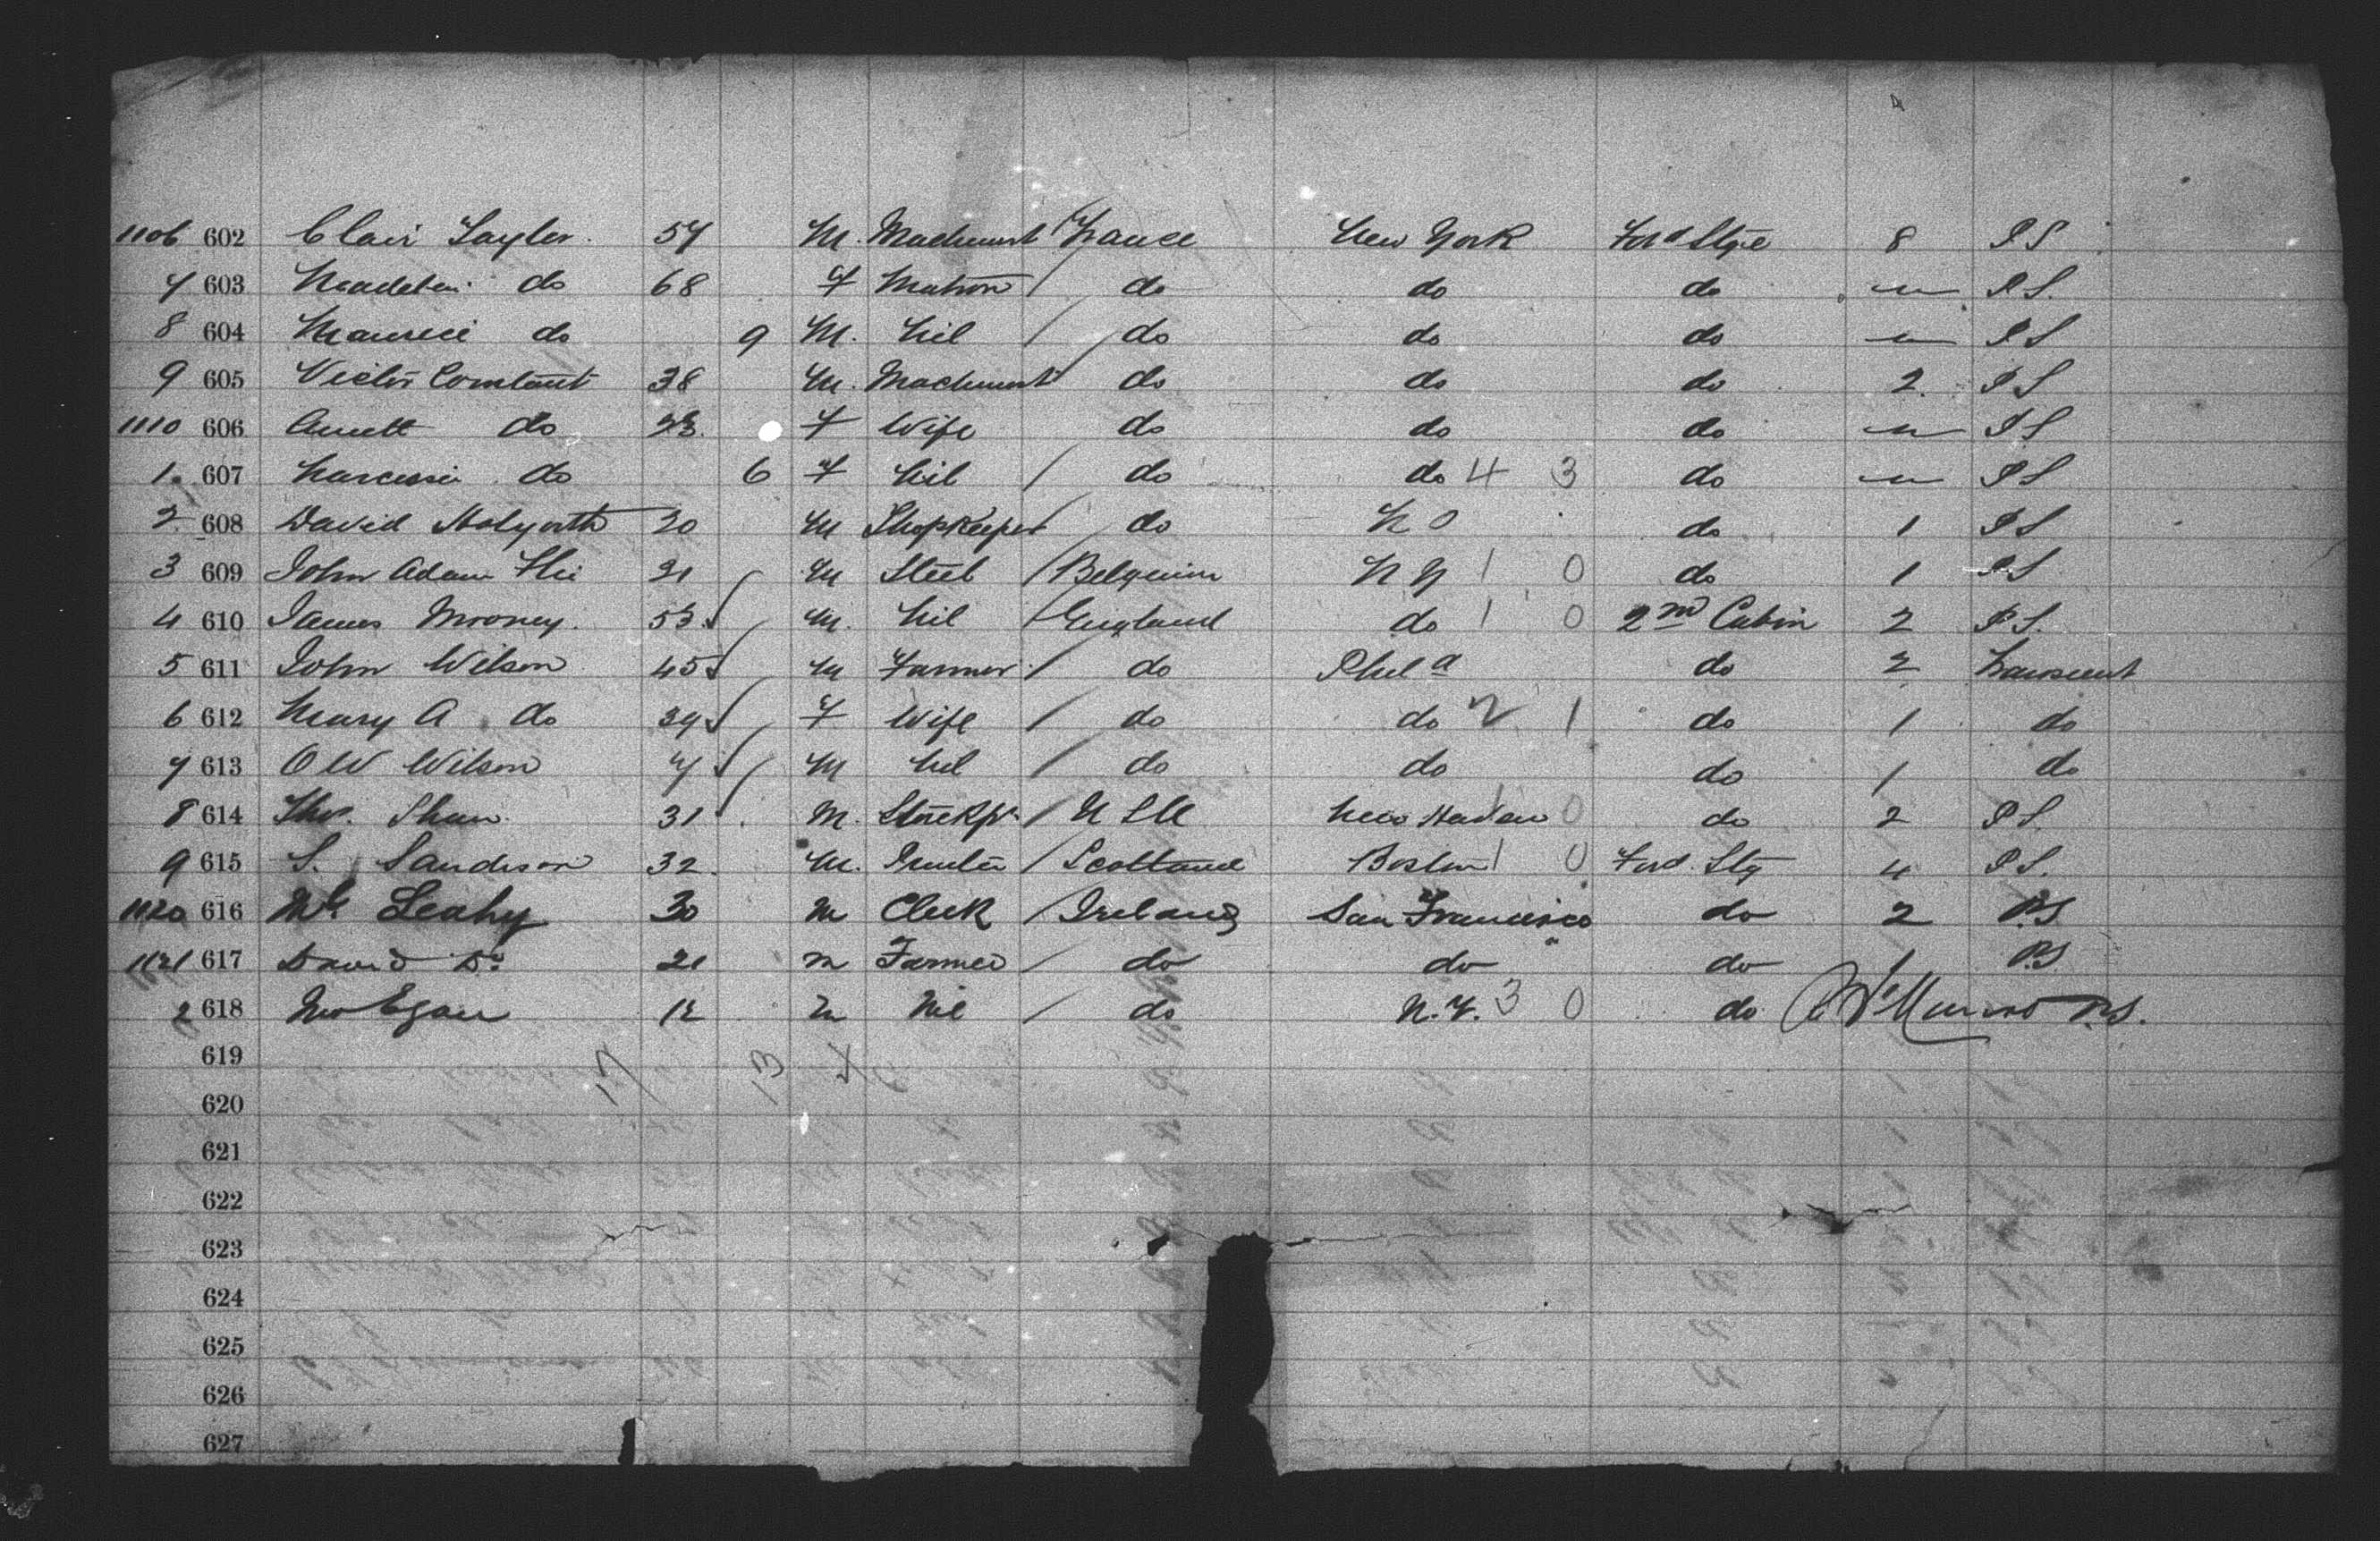 1106 602 Clair Taylor. 57 M. Machinist France New York Ford Stge 8 P S
7 603 do 68 F Matron / do do do " P S.
8 604 Maurice do 9 M. Nil / do do do " P S
9 605 Victor Constant 38 M. Machinist / do do do 2. P S
1110 606 do F Wife do do do " P S
1. 607 do 6 F Nil / do do 4 3 do " P S
2 608 David 20 M Shopkeeper / do N O do 1 P S
3 609 John Adam 21 M / Belguim N Y 1 0 do 1 P S
4 610 James Mooney. 53 M. Nil / England do 1 0 2nd Cabin 2 P S.
5 611 John Wilson 45 M Farmer / do Phila do 2 Transient
6 612 Mary A do 39 F Wife / do do 2 1 do 1 do
7 613 O W Wilson 7 M Nil / do do do 1 do
8 614 Thos. Shaw 31 M. / U S A New Haven 0 do 2 P S.
9 615 S. Sandison 32. M. / Scotland Boston 1 0 Ford. Stg 4 P S.
1120 616 Leahy 30 M Clerk / Ireland San Francisco do 2 P.S
1121 617 David Do. 21 M Farmer / do do do 1 P.S
2 618 Egan 12 M Nil / do N.Y. 3 0 do P.S.
619 17 13 4
620
621
622
623
624
625
626
627